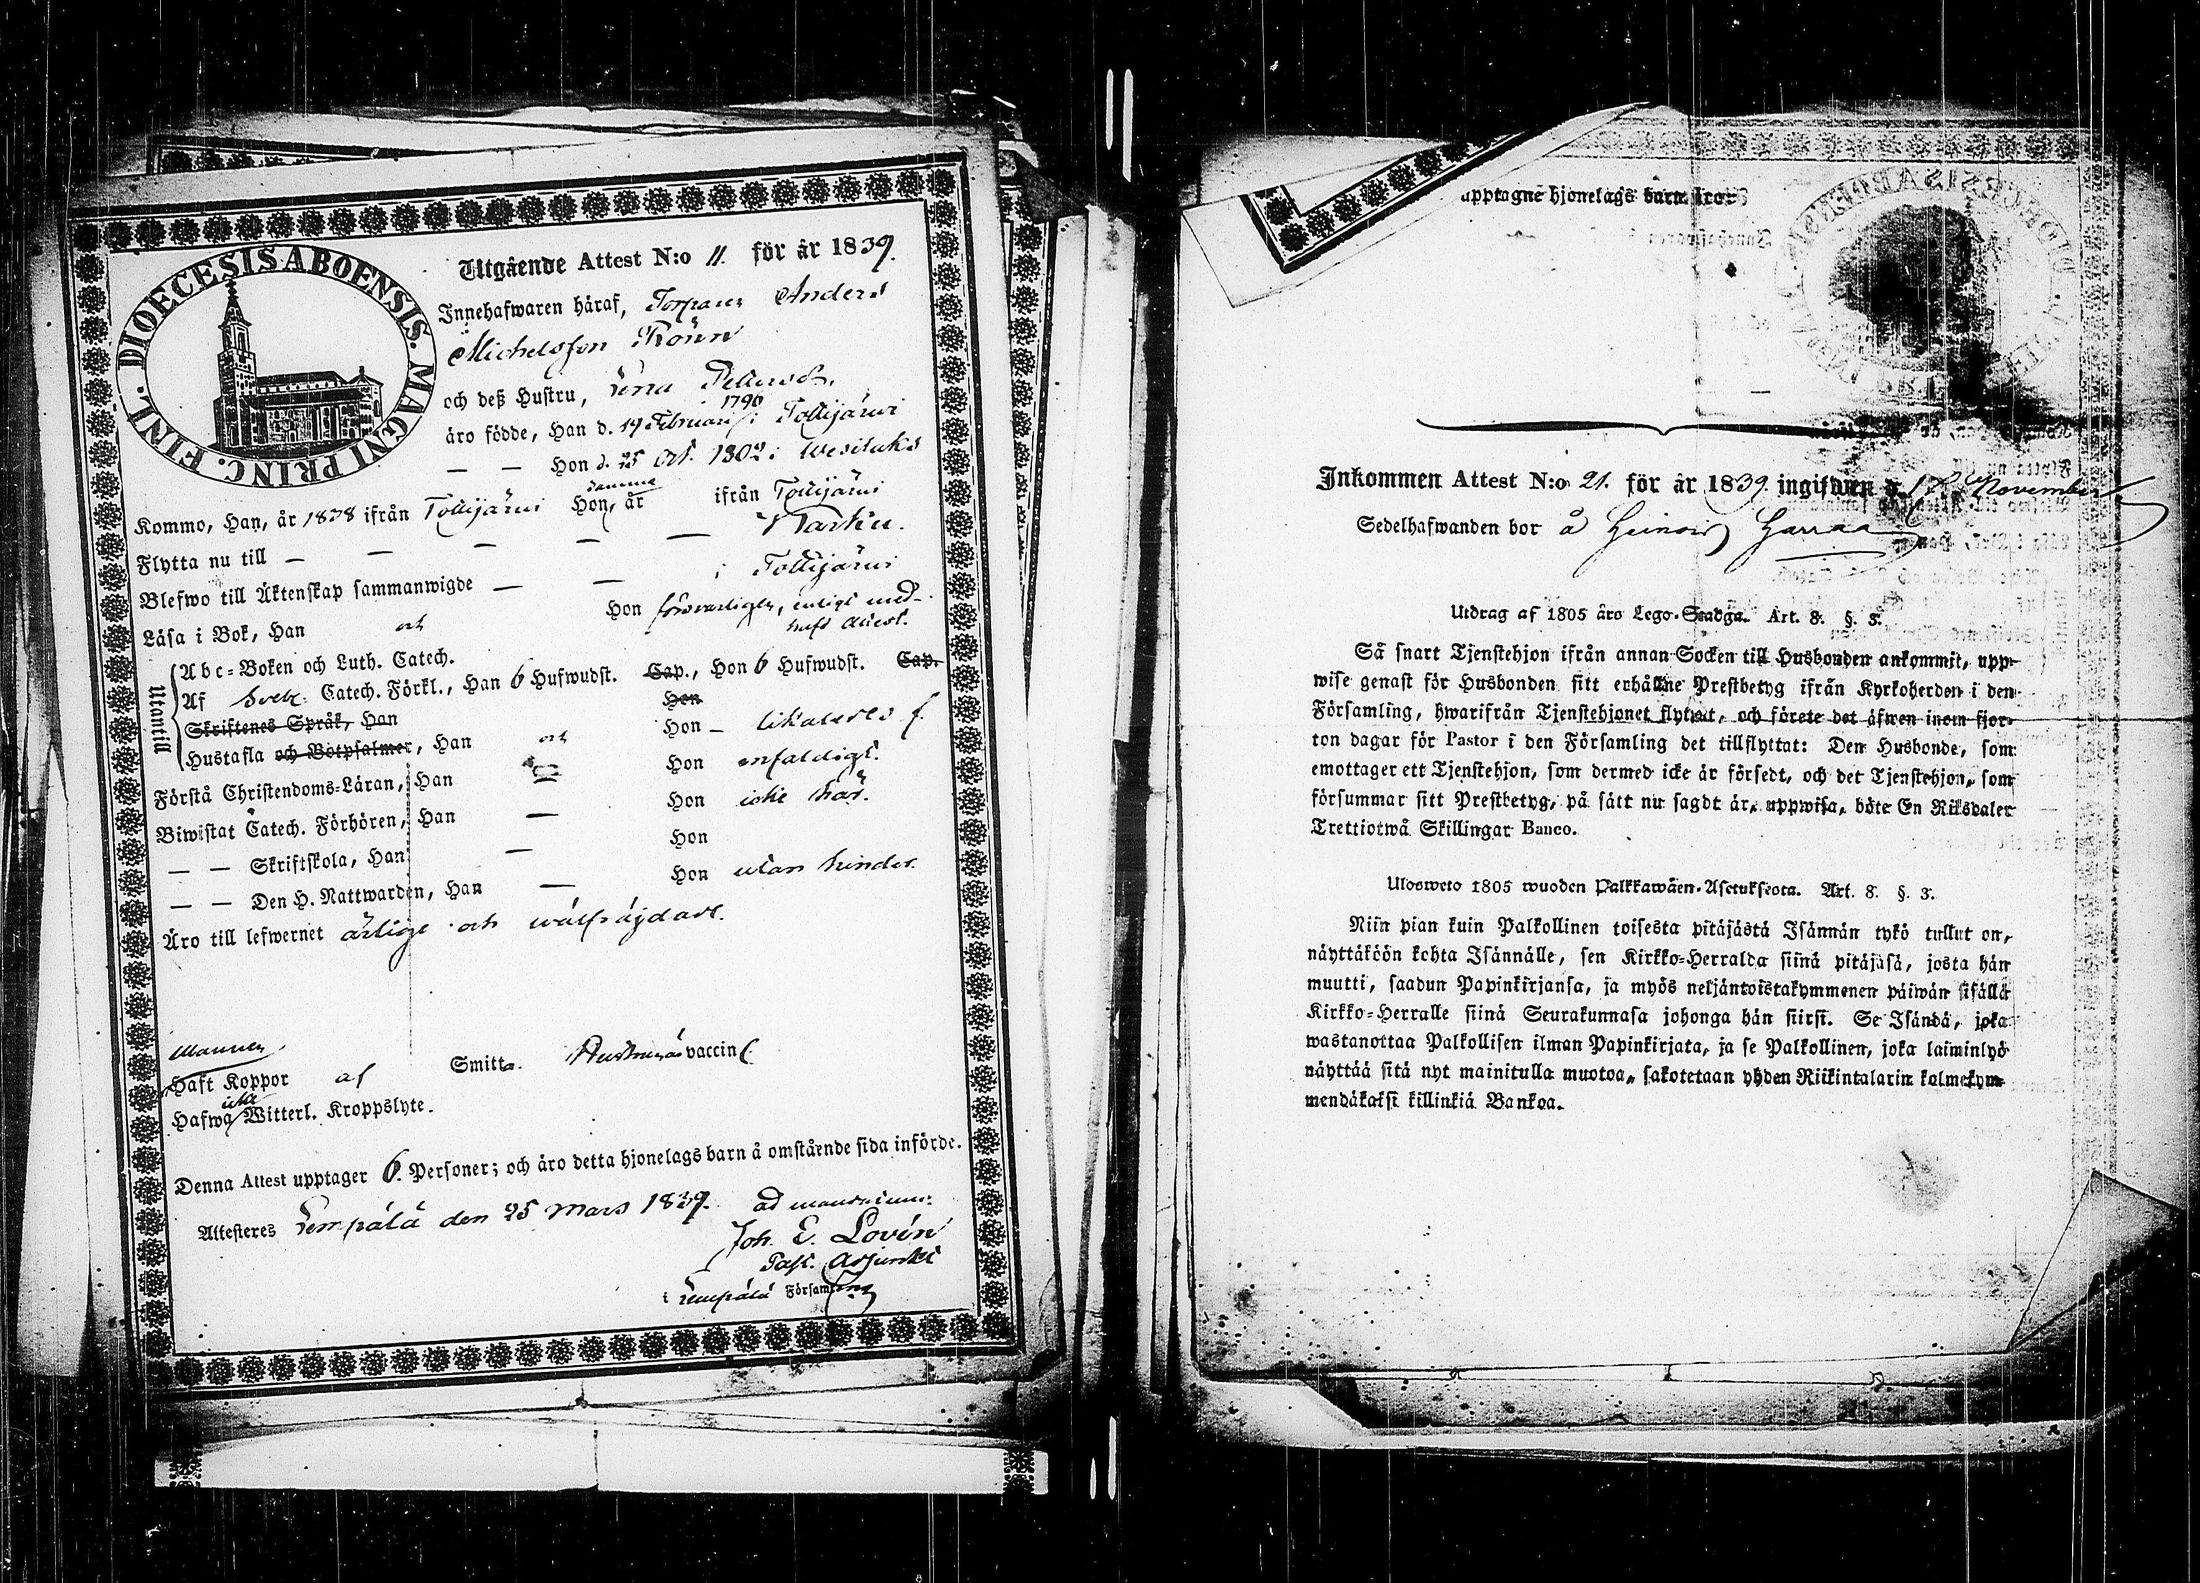 FINL. DIOECESIS ABOENSIS. MAGNI PRINC.
Utgående Attest N:o 11. för år 1839.
Innehafwaren häraf, Torparen Anders
Michelsson Rönn
och deß Hustru, Lena Pettersdr.
äro födde, Han d. 19 Februari 1790 i Tottijärwi
— — Hon d. 25 Oct. 1802 i Wesilaks
Kommo, Han, år 1838 ifrån Tottijärwi Hon, samma år ifrån Tottijärwi
Flytta nu till — — — — — Karku.
Blefwo till Äktenskap sammanwigde — — i Tottijärwi
Läsa i Bok, Han och Hon försvarligen, enligt med-
haft attest.
Utantill
Abc-Boken och Luth. Catech.
Af Sveb. Catech. Förkl., Han 6 Hufwudst. Cap., Hon 6 Hufwudst. Cap.
Skriftenes Språk, Han Hon
Hustafla och Botpsalmer, Han Hon — likaledes
Förstå Christendoms-Läran, Han och Hon enfaldigt.
Biwistat Catech. Förhören, Han Hon icke här.
— — Skriftskola, Han — Hon
— — Den H. Nattwarden, Han — Hon utan hinder.
Äro till lefwernet ärlige och wälfräjdade.
Mannen
Haft Koppor af Smitta. Hustrun vaccin
Hafwa icke Witterl. Kroppslyte.
Denna Attest upptager 6. Personer; och äro detta hjonelags barn å omstående sida införde.
Attesteres Lempälä den 25 Mars 1839. ad mandatum:
Joh. E. Lovén
Past. Adjunkt
i Lempälä Församling
upptagne hjonelags barn äro:
Inkommen Attest N:o 21. för år 1839. ingifwen d. November
Sedelhafwanden bor å Heinoo Harraa
Utdrag af 1805 års Lego-Stadga. Art. 8. §. 3.
Så snart Tjenstehjon ifrån annan Socken till Husbonden ankommit, upp-
wise genast för Husbonden sitt erhållne Prestbetyg ifrån Kyrkoherden i den
Församling, hwarifrån Tjenstehjonet flyttat, och förete det äfwen inom fjor-
ton dagar för Pastor i den Församling det tillflyttat: Den Husbonde, som
emottager ett Tjenstehjon, som dermed icke är försedt, och det Tjenstehjon, som
försummar sitt Prestbetyg, på sätt nu sagdt är, uppwisa, böte En Riksdaler
Trettiotwå Skillingar Banco.
Ulosweto 1805 wuoden Palkkawäen-Asetuksesta. Art. 8. §. 3.
Niin pian kuin Palkollinen toisesta pitäjästä Isännän tykö tullut on,
näyttäköön kohta Isännälle, sen Kirkko-Herralda siinä pitäjäsä, josta hän
muutti, saadun Papinkirjansa, ja myös neljäntoistakymmenen päiwän sisällä
Kirkko-Herralle siinä Seurakunnasa johonga hän siirsi. Se Isändä, joka
wastanottaa Palkollisen ilman Papinkirjata, ja se Palkollinen, joka laiminlyö
näyttää sitä nyt mainitulla muotoa, sakotetaan yhden Riikintalarin kolmekym-
mendäkaksi killinkiä Bankoa.